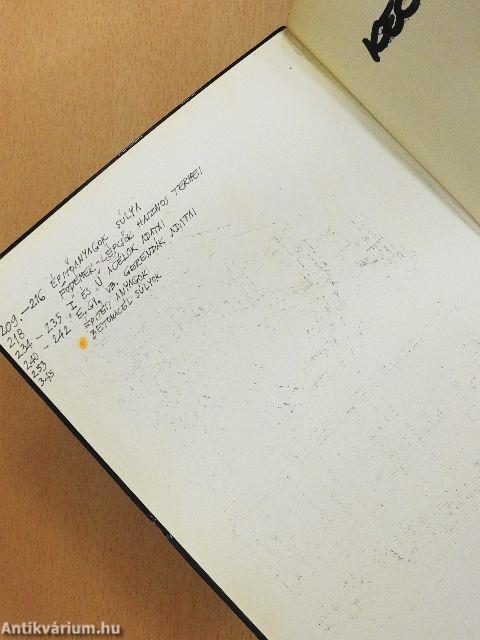 KEC
209.-216 ÉPÍTŐANYAGOK SÚLYA
218 FÖDÉMEK-LÉPCSŐK HASZNOS TERHEI
234-235 "I" ÉS "U" ACÉLOK ADATAI
240-242 E.GY. VB. GERENDÁK ADATAI
253 ÉPÍTETT ANYAGOK
345 BETONACÉL SÚLYOK
Antikvárium.hu